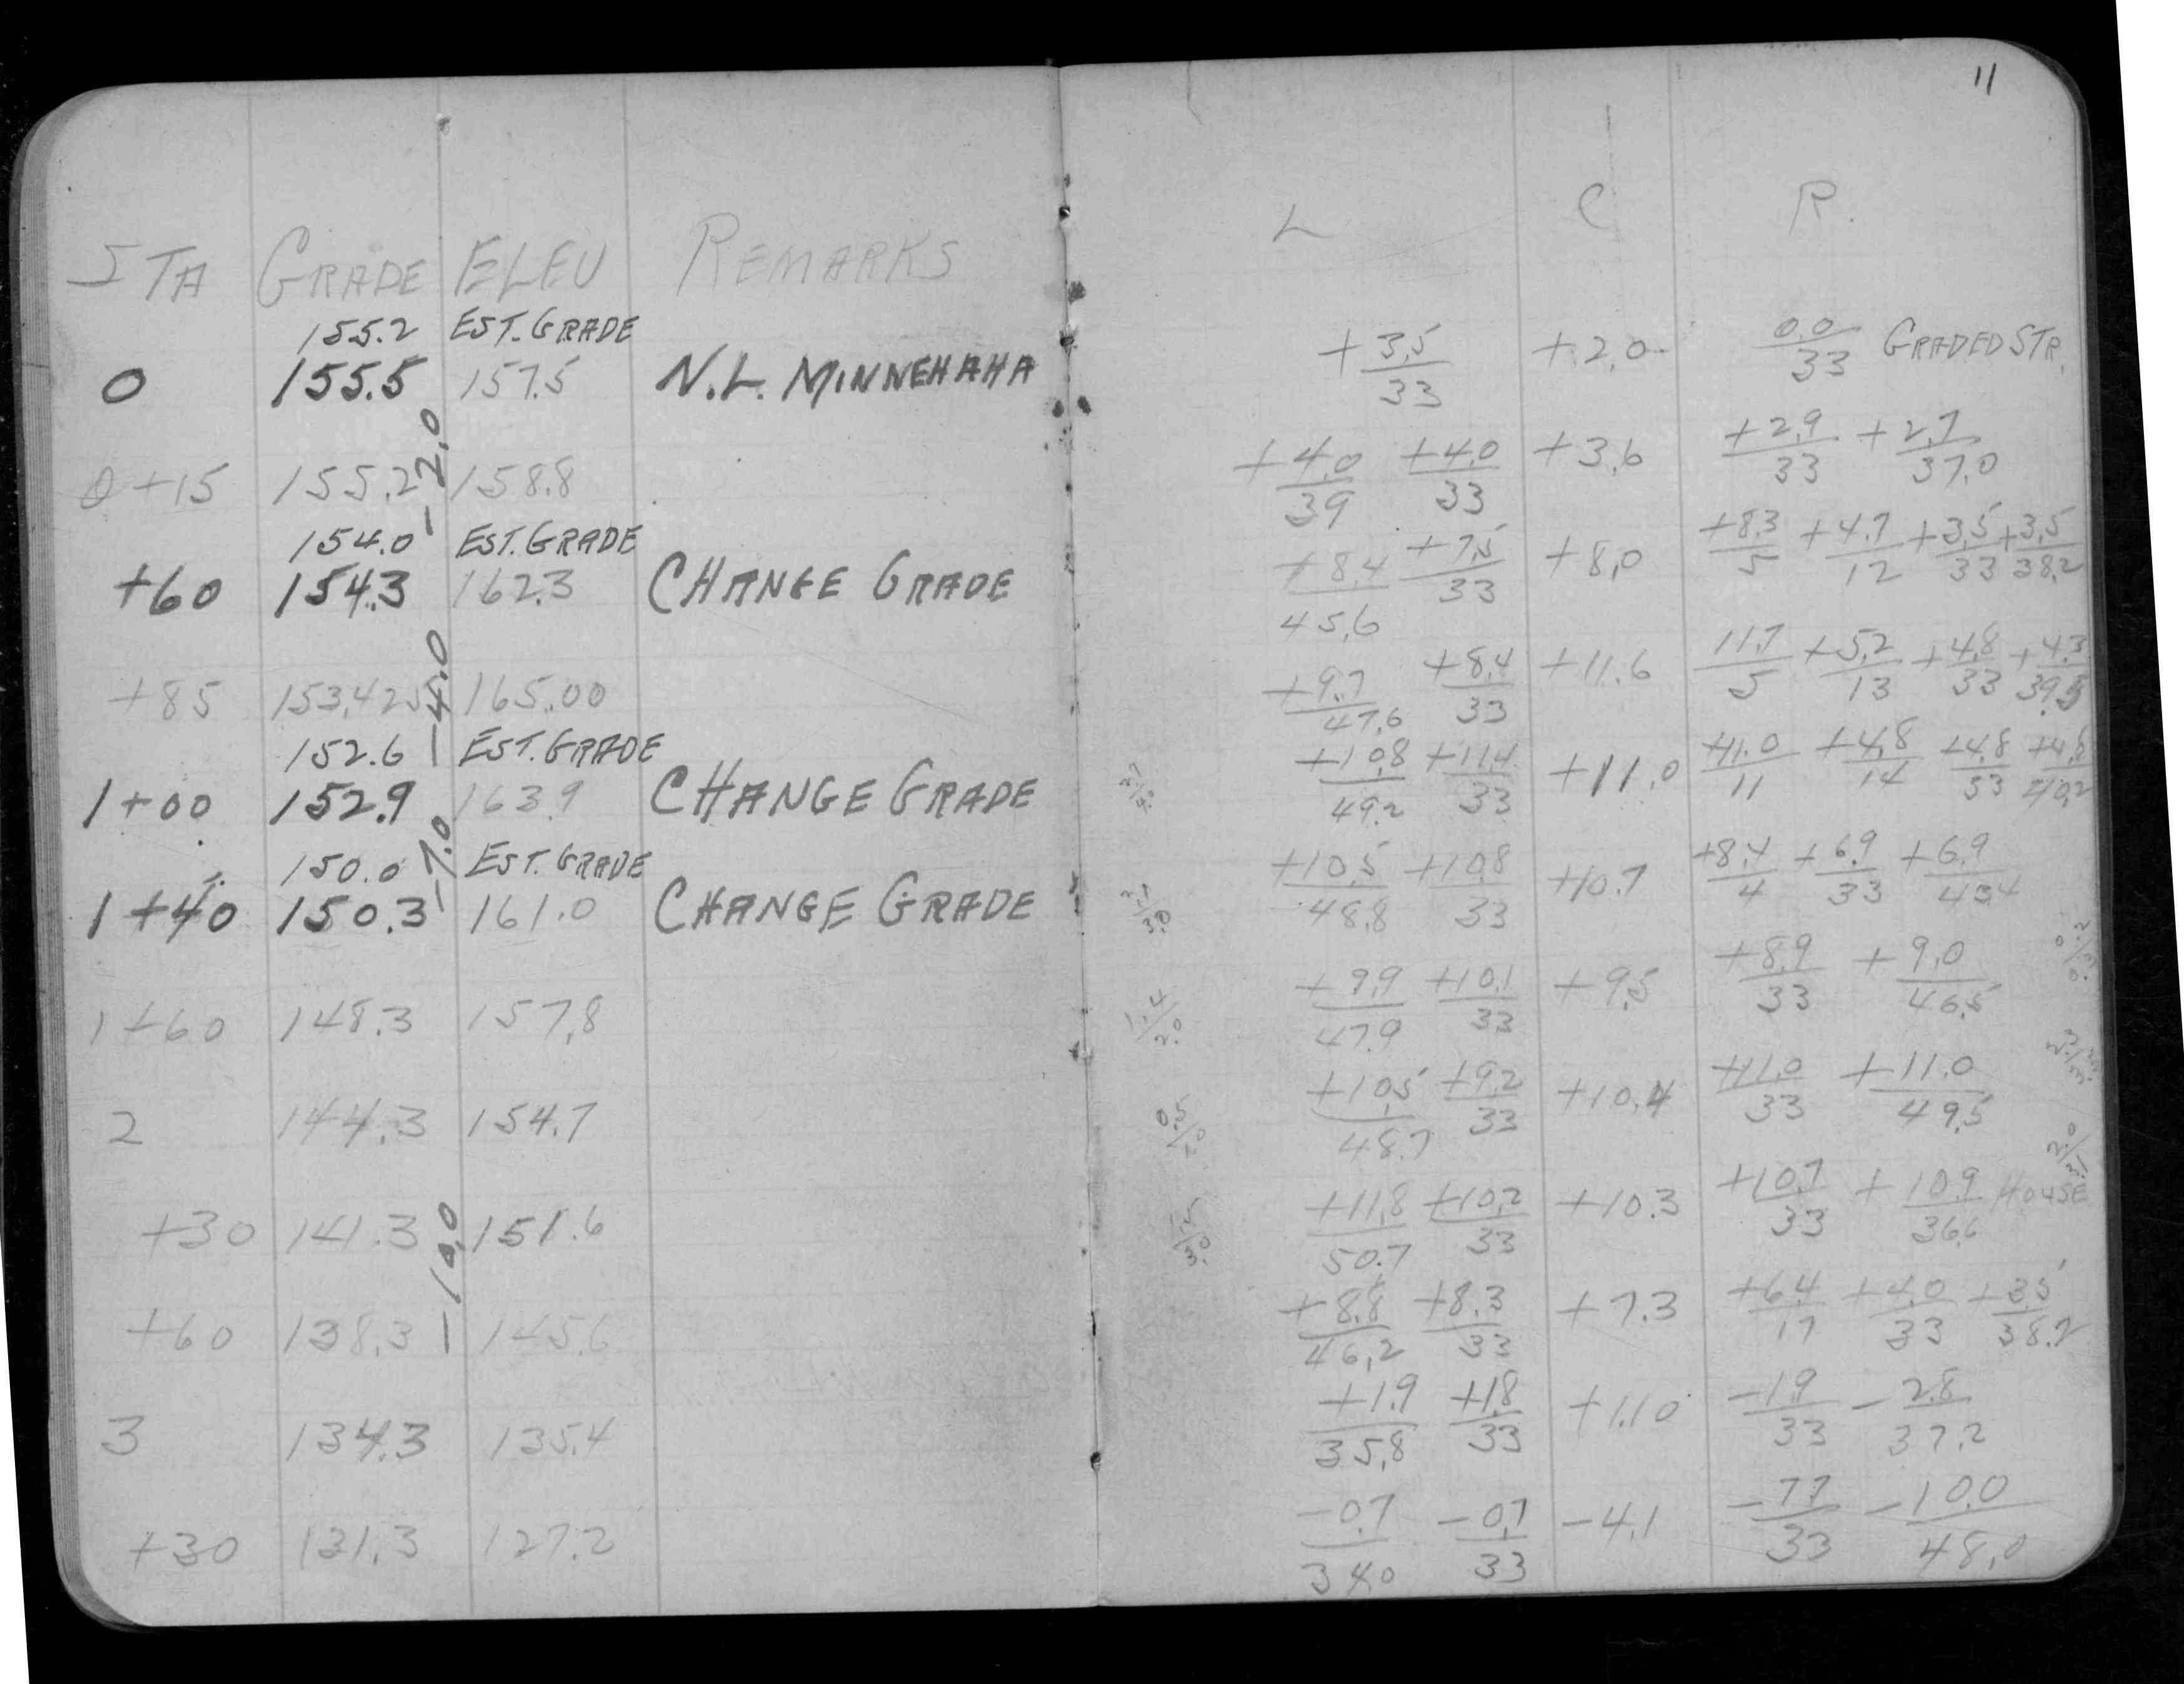 11
L C R.
STA GRADE ELEV REMARKS
155.2 EST. GRADE
0 155.5 157.5 N.L. MINNEHAHA +3.5/33 +2.0 0.0/33 GRADED STR.
-2.0
0+15 155.2 158.8 +4.0/39 +4.0/33 +3.6 +2.9/33 +2.7/37.0
154.0 EST. GRADE
+60 154.3 162.3 CHANGE GRADE +8.4/45.6 +7.5/33 +8.0 +8.3/5 +4.7/12 +3.5/33 +3.5/38.2
-4.0
+85 153.425 165.00 +9.7/47.6 +8.4/33 +11.6 11.7/5 +5.2/13 +4.8/33 +4.3/39.5
152.6 EST. GRADE
1+00 152.9 163.9 CHANGE GRADE +10.8/49.2 +11.4/33 +11.0 +11.0/11 +4.8/14 +4.8/33 +4.8/40.2
-7.0
150.0 EST. GRADE
1+40 150.3 161.0 CHANGE GRADE +10.5/48.8 +10.8/33 +10.7 +8.4/4 +6.9/33 +6.9/43.4
1+60 148.3 157.8 1.4/2.0 +9.9/47.9 +10.1/33 +9.5 +8.9/33 +9.0/46.5
2 144.3 154.7 0.5/1.0 +10.5/48.7 +9.2/33 +10.4 +11.0/33 +11.0/49.5
+30 141.3 151.6 +11.8/50.7 +10.2/33 +10.3 +10.7/33 +10.9/36.6 HOUSE
-10.0
+60 138.3 145.6 +8.8/46.2 +8.3/33 +7.3 +6.4/17 +4.0/33 +3.5/38.2
3 134.3 135.4 +1.9/35.8 +1.8/33 +1.10 -1.9/33 -2.8/37.2
+30 131.3 127.2 -0.7/34.0 -0.7/33 -4.1 -7.7/33 -10.0/48.0